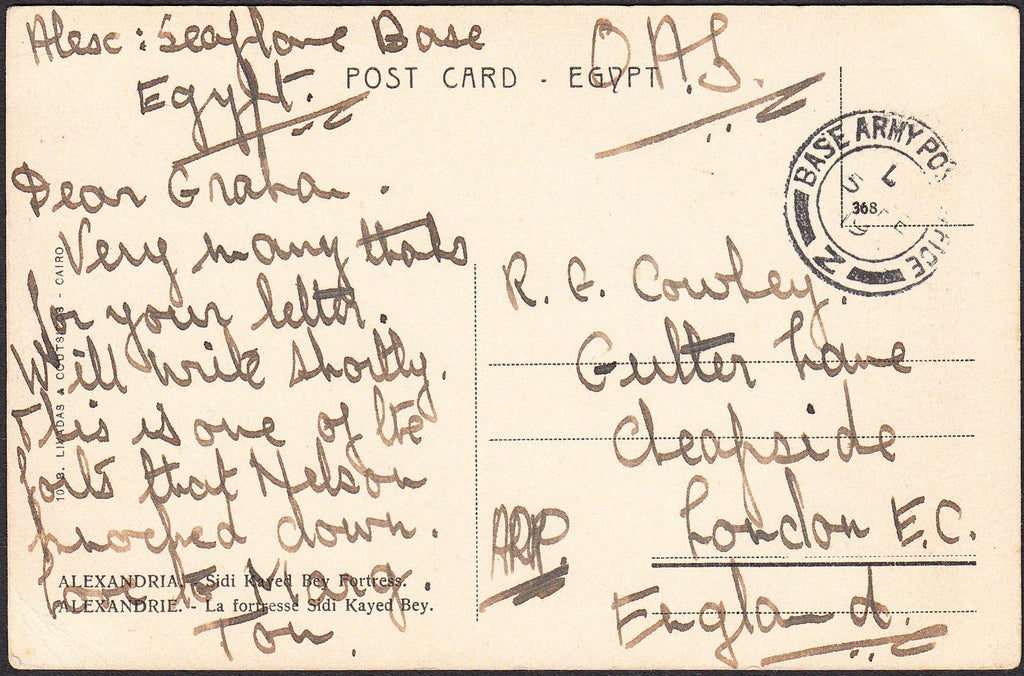 Alesc: Seaplane Base
Egypt.
O.A.S.
POST CARD - EGYPT
Dear Graham.
Very many thanks
for your letter.
Will write shortly.
This is one of the
forts that Nelson
knocked down.
Love to Marg.
Tom.
ALEXANDRIA. - Sidi Kayed Bey Fortress.
ALEXANDRIE. - La forteresse Sidi Kayed Bey.
LIVADAS & COUTSICOS - CAIRO
BASE ARMY POST OFFICE
Z
368
R. G. Cowley.
Gutter Lane
Cheapside
London E.C.
England.